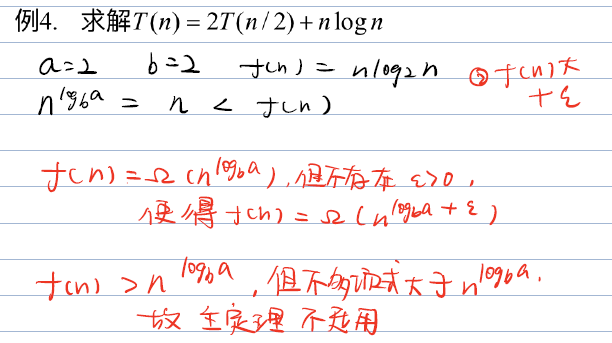 例4. 求解T(n) = 2T(n/2) + n log n
a=2 b=2 f(n) = nlog₂n ③ f(n)大
n^{log_b a} = n < f(n) +ε
f(n) = Ω(n^{log_b a}), 但不存在 ε>0,
使得 f(n) = Ω(n^{log_b a + ε})
f(n) > n^{log_b a}, 但不够多项式大于 n^{log_b a}.
故 主定理 不适用